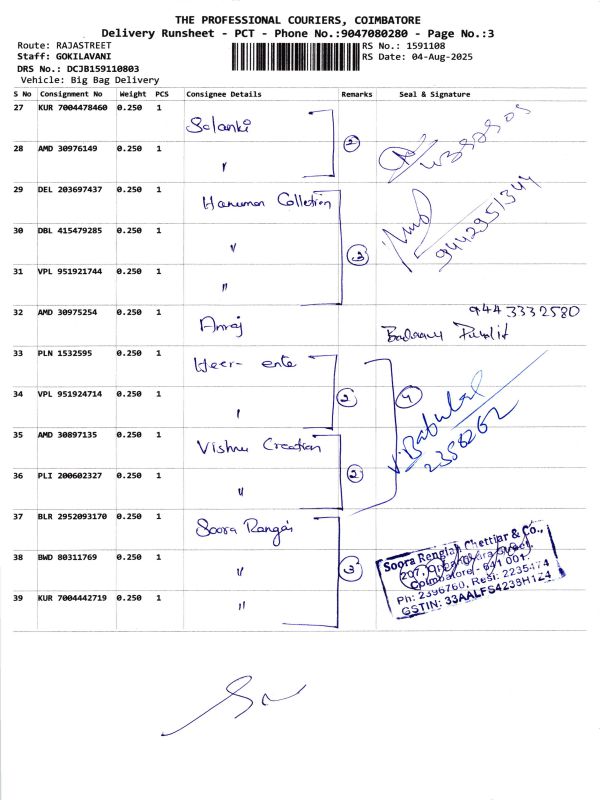 THE PROFESSIONAL COURIERS, COIMBATORE
Delivery Runsheet - PCT - Phone No.:9047080280 - Page No.:3
Route: RAJASTREET
RS No.: 1591108
Staff: GOKILAVANI
RS Date: 04-Aug-2025
DRS No.: DCJB159110803
Vehicle: Big Bag Delivery
S No Consignment No Weight PCS Consignee Details Remarks Seal & Signature
27 KUR 7004478460 0.250 1 Solanki
28 AMD 30976149 0.250 1 "
2
29 DEL 203697437 0.250 1 Hanuman Colletion
30 DBL 415479285 0.250 1 "
3
9442951344
31 VPL 951921744 0.250 1 "
32 AMD 30975254 0.250 1
9443332580
33 PLN 1532595 0.250 1 Heer- ente
34 VPL 951924714 0.250 1 "
2 4
V.Babulal
2356262
35 AMD 30897135 0.250 1 Vishnu Creation
36 PLI 200602327 0.250 1 "
2
37 BLR 2952093170 0.250 1 Soora Rangai
38 BWD 80311769 0.250 1 "
3
39 KUR 7004442719 0.250 1 "
Soora Rengiah Chettiar & Co.,
207, Street,
Coimbatore - 641 001.
Ph: 2396760, Resi: 2235474
GSTIN: 33AALFS4239H1Z4